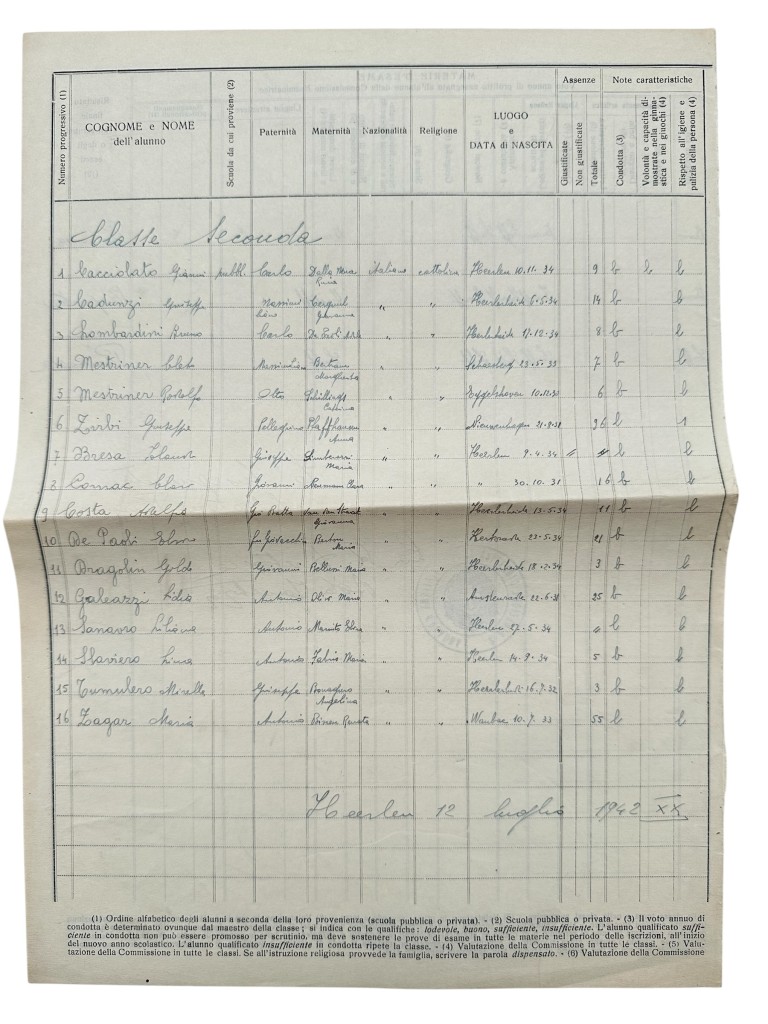 Numero progressivo (1)
COGNOME e NOME
dell'alunno
Scuola da cui proviene (2)
Paternità
Maternità
Nazionalità
Religione
LUOGO
e
DATA di NASCITA
Assenze
Giustificate
Non giustificate
Totale
Note caratteristiche
Condotta (3)
Volontà e capacità di-
mostrate nella ginna-
stica e nei giuochi (4)
Rispetto all'igiene e
pulizia della persona (4)
Classe Seconda
1 Cacciolato Gianni pubbl. Carlo italiana cattolica Heerlen 10.11.34 9 b b b
2 Giuseppe " " Heerlerheide 5.5.34 14 b b
3 Lombardini Bruno Carlo De Paoli " " Heerlerheide 17.12.34 8 b b
4 Mestriner Massimiliano Bertram " " 23.5.33 7 b b
Margherita
5 Mestriner Rodolfo Otto " " Eygelshoven 6 b b
6 Zirbi Giuseppe Pellegrino Pfaffhausen " " Nieuwenhagen 36 b
Anna
7 Bresa Giuseppe " " Heerlen 9.4.34 " b b
Maria
8 Comac Clara Giovanni " " " 30.10.31 16 b b
9 Costa Adolfo Gio Batta " " Heerlerheide 13.5.34 11 b b
Giovanna
10 De Paoli " " Kerkrade 23.5.34 21 b b
Maria
11 Bragolin Giovanni Belluni Maria " " Heerlerheide 3 b b
12 Galeazzi Lidia Antonio Maria " " Amstenrade 25 b b
13 Sanavro Liliana Antonio " " Heerlen 27.5.34 b b
14 Slaviero Lina Antonio Fabris Maria " " Heerlen 14.9.34 5 b b
15 Tumulero Mirella Giuseppe " " 3 b b
Angelina
16 Zagar Maria Antonio Renata " " Waubac 10.7.33 55 b b
Heerlen 12 luglio 1942 XX
(1) Ordine alfabetico degli alunni a seconda della loro provenienza (scuola pubblica o privata). - (2) Scuola pubblica o privata. - (3) Il voto annuo di
condotta è determinato ovunque dal maestro della classe; si indica con le qualifiche: lodevole, buono, sufficiente, insufficiente. L'alunno qualificato suffi-
ciente in condotta non può essere promosso per scrutinio, ma deve sostenere le prove di esame in tutte le materie nel periodo delle iscrizioni, all'inizio
del nuovo anno scolastico. L'alunno qualificato insufficiente in condotta ripete la classe. - (4) Valutazione della Commissione in tutte le classi. - (5) Valu-
tazione della Commissione in tutte le classi. Se all'istruzione religiosa provvede la famiglia, scrivere la parola dispensato. - (6) Valutazione della Commissione